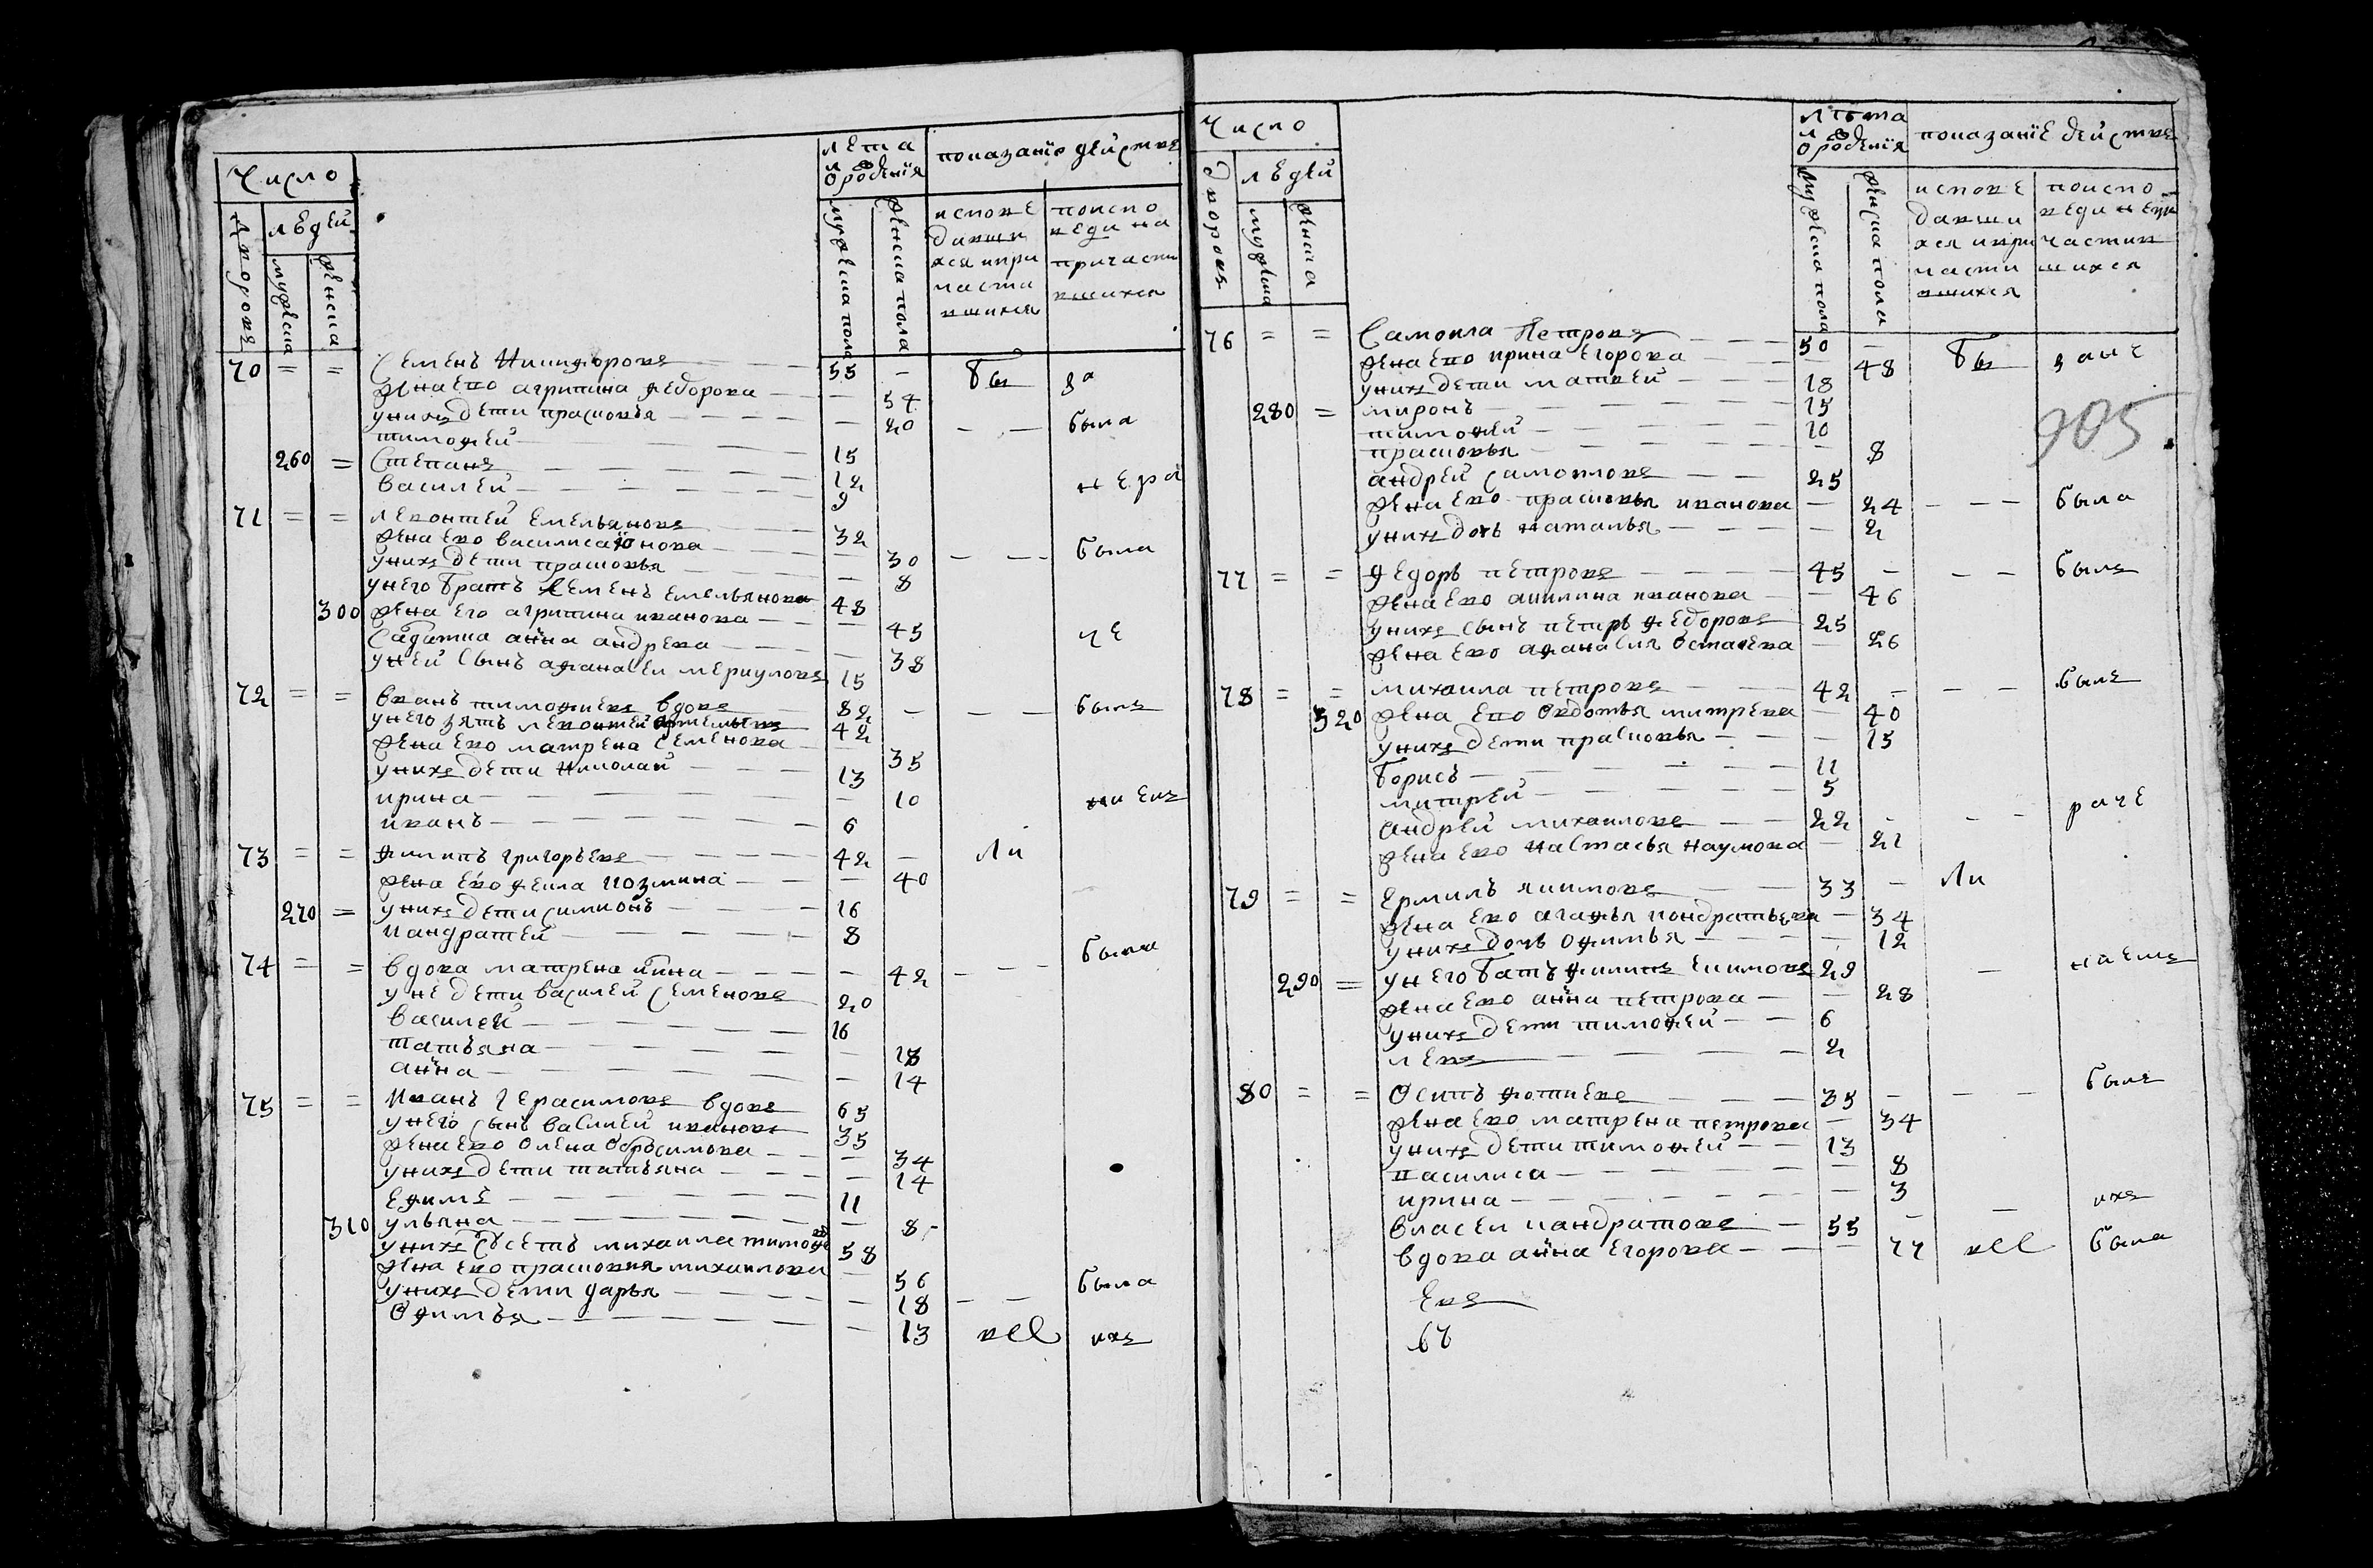 Число
лета
и
ороденїя
показанїе действъ
дворовъ
людей
мужеска
женска
мужеска пола
женска пола
испове
давши
хся ипри
части
вшихся
поиспо
веди на
причасти
вшихся
70 = = Семенъ Никифоровъ 55 - Бы за
жена ево агрипина федорова - 54
унихъ дети прасковья - 20 - - была
тимофей 15
260 = Степанъ 12
василей 9 нера
71 = = леонтей Емельяновъ 32
жена ево василиса нова - 30 - - была
унихъ дети прасковья - 8
унего братъ Семенъ Емельяновъ 48
300 жена Его агрипина иванова - 45
Салдатка анна андрева - 38 че
уней Сынъ афанасеи меркуловъ 15
72 = = Иванъ тимофиевъ вдовъ 82 - - - былъ
унего зять леонтей 42
жена ево матрена Семенова - 35
унихъ дети Николай 13
ирина - 10
иванъ 6
73 = = Филипъ григорьевъ 42 - Ли
жена Ево фекла козмина - 40
270 = унихъ дети симионъ 16
Кандратей 8
74 = = вдова матрена - 42 - - была
уне дети василей Семеновъ 20
василей 16
татьяна - 18
анна - 14
75 = = Иванъ Герасимовъ вдовъ 65
унего сынъ василей ивановъ 35
жена ево олена обросимова - 34
унихъ дети татьяна - 14
Ефимъ 11
310 ульяна - 8 -
унихъ Сусетъ михаила тимофе 58
жена ево прасковия михаилова - 56
унихъ дети дарья - 18 - - была
Офимья - 13 ихъ
Число
лѣта
и
ороденїя
показанїе действъ
дворовъ
людей
мужеска
женска
мужеска пола
женска пола
испове
давши
хся ипри
части
вшихся
поиспо
веди непри
частив
шихся
76 = = Самоила Петровъ 50 - Бы
жена ево ирина Егорова - 48
унихъ дети матвей 18
280 = миронъ 15
тимофей 10
905
прасковья - 8
андрей Самоиловъ 25
жена ево прасковья иванова - 24 - - была
унихъ дочь наталья - 2
77 = = федоръ петровъ 45 - - - былъ
жена ево акилина иванова - 46
унихъ сынъ петръ федоровъ 25
жена ево афанасия - 26
78 = = михаила петровъ 42 - - - былъ
320 жена ево овдотья митрева - 40
унихъ дети прасковья - 15
борисъ 11
митрей 5
андрей михаиловъ 22 - - - раче
жена ево настасья наумова - 21
79 = = Ермилъ якимовъ 33 - Ли
жена ево агафья кондратьева - 34
унихъ дочь офимья - 12
290 = унего батъ филипъ Екимовъ 29 -
жена ево анна петрова - 28
унихъ дети тимофей 6
левъ 2
80 = = Осипъ фотиевъ 35 - - - былъ
жена ево матрена петрова - 34
унихъ дети тимофей 13
василиса - 8
ирина - 3
власеи кандратовъ 55 - - ихъ
вдова анна Егорова - 77 была